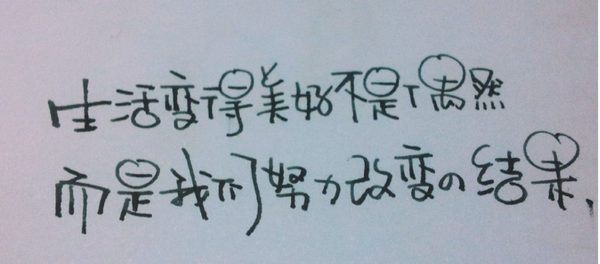 生活变得美好不是偶然
而是我们努力改变の结果.